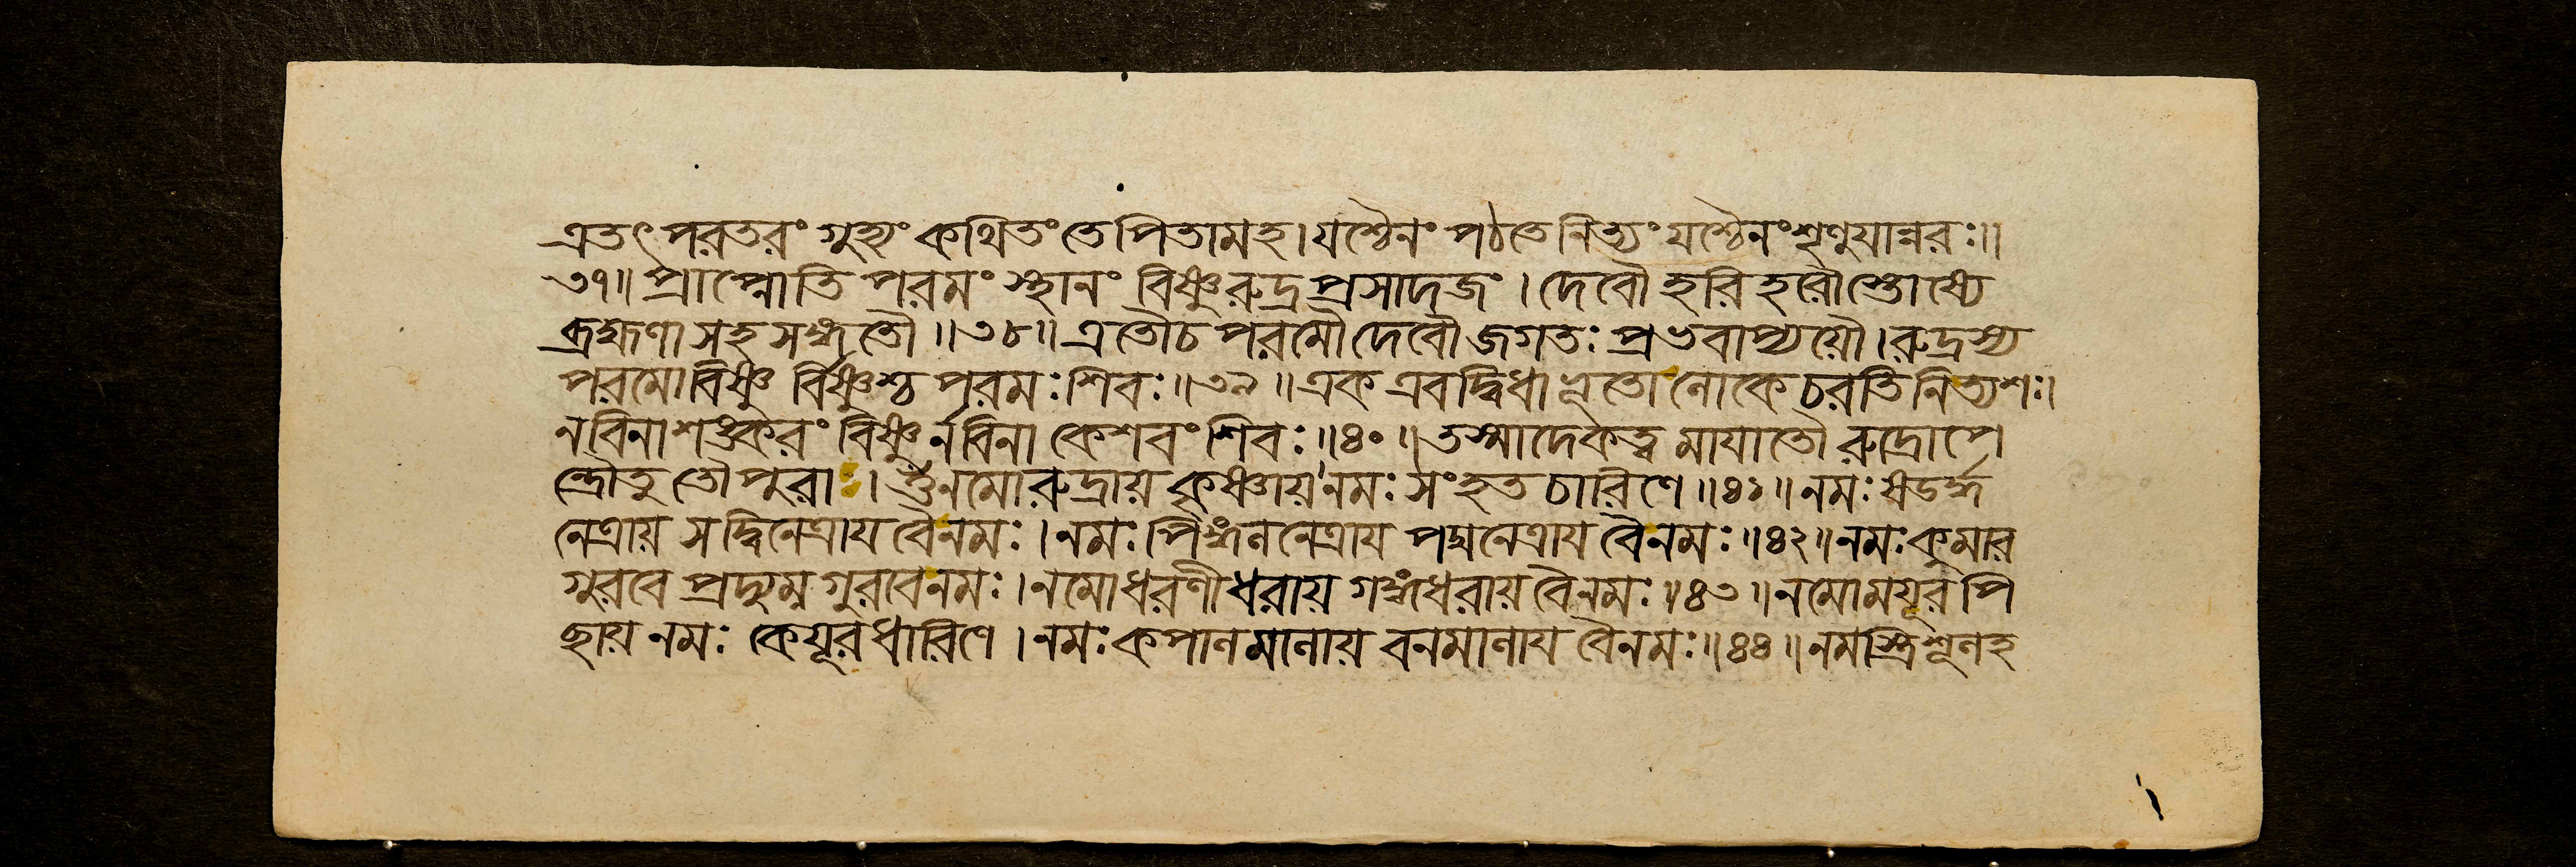 এতৎ পরতরং গুহ্যং কথিতং তে পিতামহ। যশ্চৈনং পঠতে নিত্যং যশ্চৈনং শৃণুযান্নরঃ॥
৩৭॥ প্রাপ্নোতি পরমং স্থানং বিষ্ণুরুদ্রপ্রসাদজং। দেবৌ হরিহরৌ স্তোষ্যে
ব্রহ্মণা সহ সঙ্গতৌ॥৩৮॥ এতৌ চ পরমৌ দেবৌ জগতঃ প্রভবাপ্যয়ৌ। রুদ্রস্য
পরমো বিষ্ণু র্বিষ্ণুশ্চ পরমঃ শিবঃ॥৩৯॥ এক এব দ্বিধা ভূতো লোকে চরতি নিত্যশঃ।
ন বিনা শঙ্করং বিষ্ণু র্ন বিনা কেশবং শিবঃ॥৪০॥ তস্মাদেকত্ব মাযাতৌ রুদ্রোপে
ন্দ্রৌ তু তৌ পুরা। ওঁ নমো রুদ্রায় কৃষ্ণায় নমঃ সংহত চারিণে॥৪১॥ নমঃ ষডর্দ্ধ
নেত্রায় সদ্বিনেত্রায বৈ নমঃ। নমঃ পিঙ্গলনেত্রায পদ্মনেত্রায বৈ নমঃ॥৪২॥ নমঃ কুমার
গুরবে প্রদ্যুম্ন গুরবে নমঃ। নমো ধরণীধরায় গঙ্গাধরায় বৈ নমঃ॥৪৩॥ নমো ময়ূর পি
ছায় নমঃ কেয়ূর ধারিণে। নমঃ কপাল মালায় বনমালায বৈ নমঃ॥৪৪॥ নমস্ত্রিশূলহ